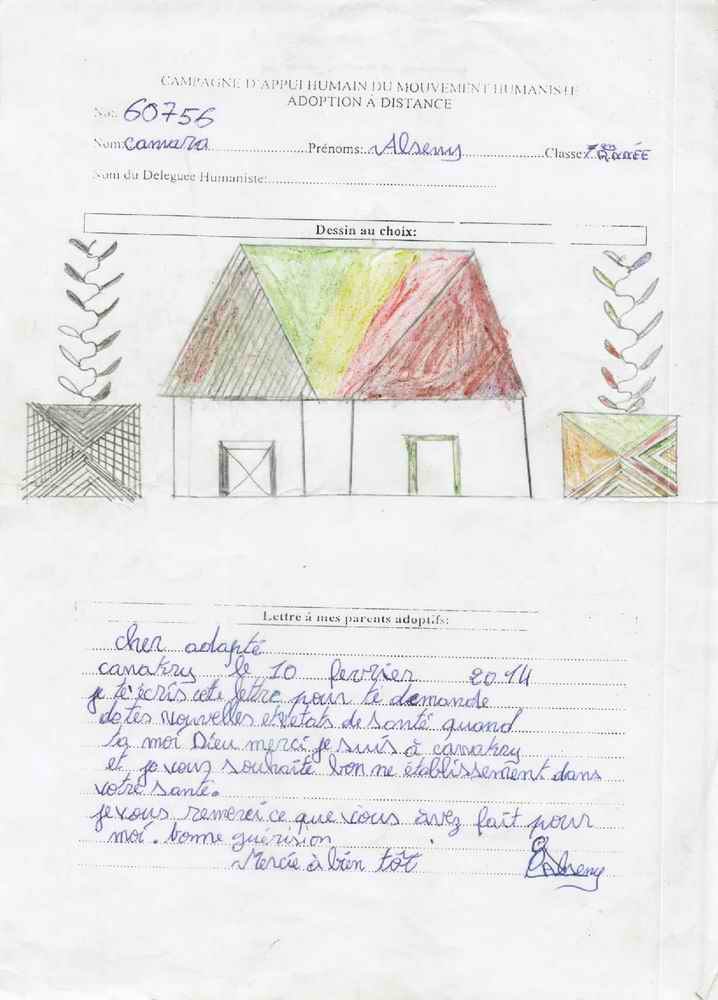 CAMPAGNE D'APPUI HUMAIN DU MOUVEMENT HUMANISTE
ADOPTION À DISTANCE
No: 60756
Nom: camara Prénoms: Alseny Classe: 7ème ANNÉE
Nom du Déléguée Humaniste:
Dessin au choix:
Lettre à mes parents adoptifs:
cher adapté
canakry le 10 fevrier 2014
je te écris cete lettre pour te demande
do tes nouvelles et vetats de santé quand
ta moi Dieu merci je suis à canakry
et je vous souhaite bon ne établissement dans
votre santé.
je vous remerci ce que vous avez fait pour
moi. bonne guérision
Mercie à bien tôt Alseny